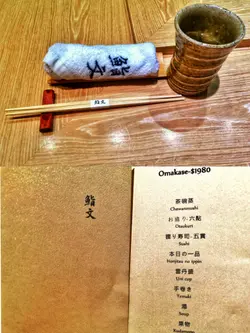 鮨文
鮨文
鮨文
Omakase-$1980
茶碗蒸
Chawanmushi
お造り-六點
Otsukuri
握り寿司-五貫
Sushi
本日の一品
Honjitsu no ippin
雲丹碗
Uni cup
手巻き
Temaki
湯
Soup